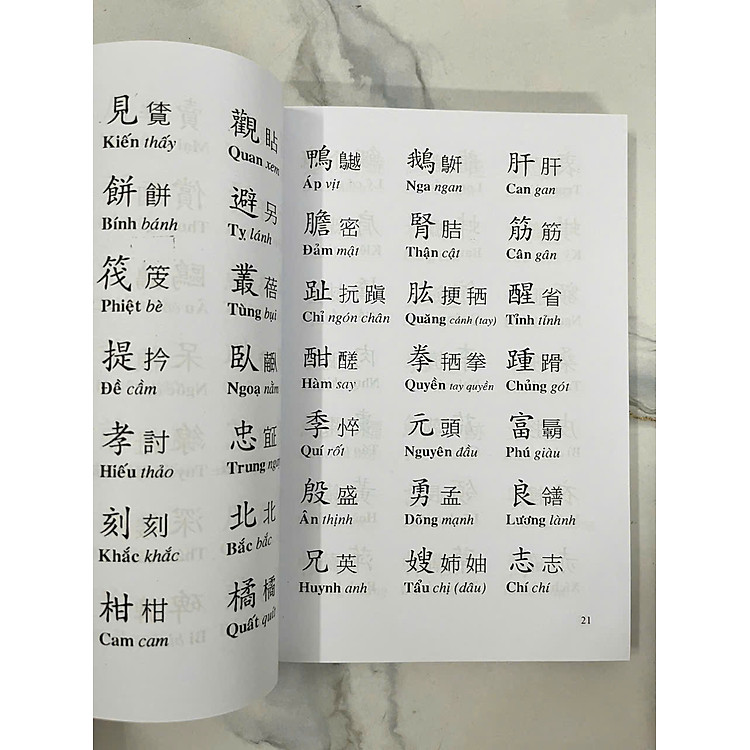 見 覓 觀 貼
Kiến thấy Quan xem
餅 餅 避 另
Bính bánh Tỵ lánh
筏 叢 蓓
Phiệt bè Tùng bụi
提 扲 臥
Đề cầm Ngoạ nằm
孝 討 忠
Hiếu thảo Trung
刻 刻 北 北
Khắc khắc Bắc bắc
柑 柑 橘 橘
Cam cam Quất quít
鴨 鵝 肝 肝
Áp vịt Nga ngan Can gan
膽 密 腎 筋 筋
Đảm mật Thận cật Cân gân
趾 抏 蹎 肱 挭 醒 省
Chỉ ngón chân Quăng cánh (tay) Tỉnh tỉnh
酣 醝 拳 拳 踵
Hàm say Quyền tay quyền Chủng gót
季 悴 元 頭 富
Quí rốt Nguyên đầu Phú giàu
殷 盛 勇 孟 良
Ân thịnh Dõng mạnh Lương lành
兄 英 嫂 姉 妯 志 志
Huynh anh Tẩu chị (dâu) Chí chí
21